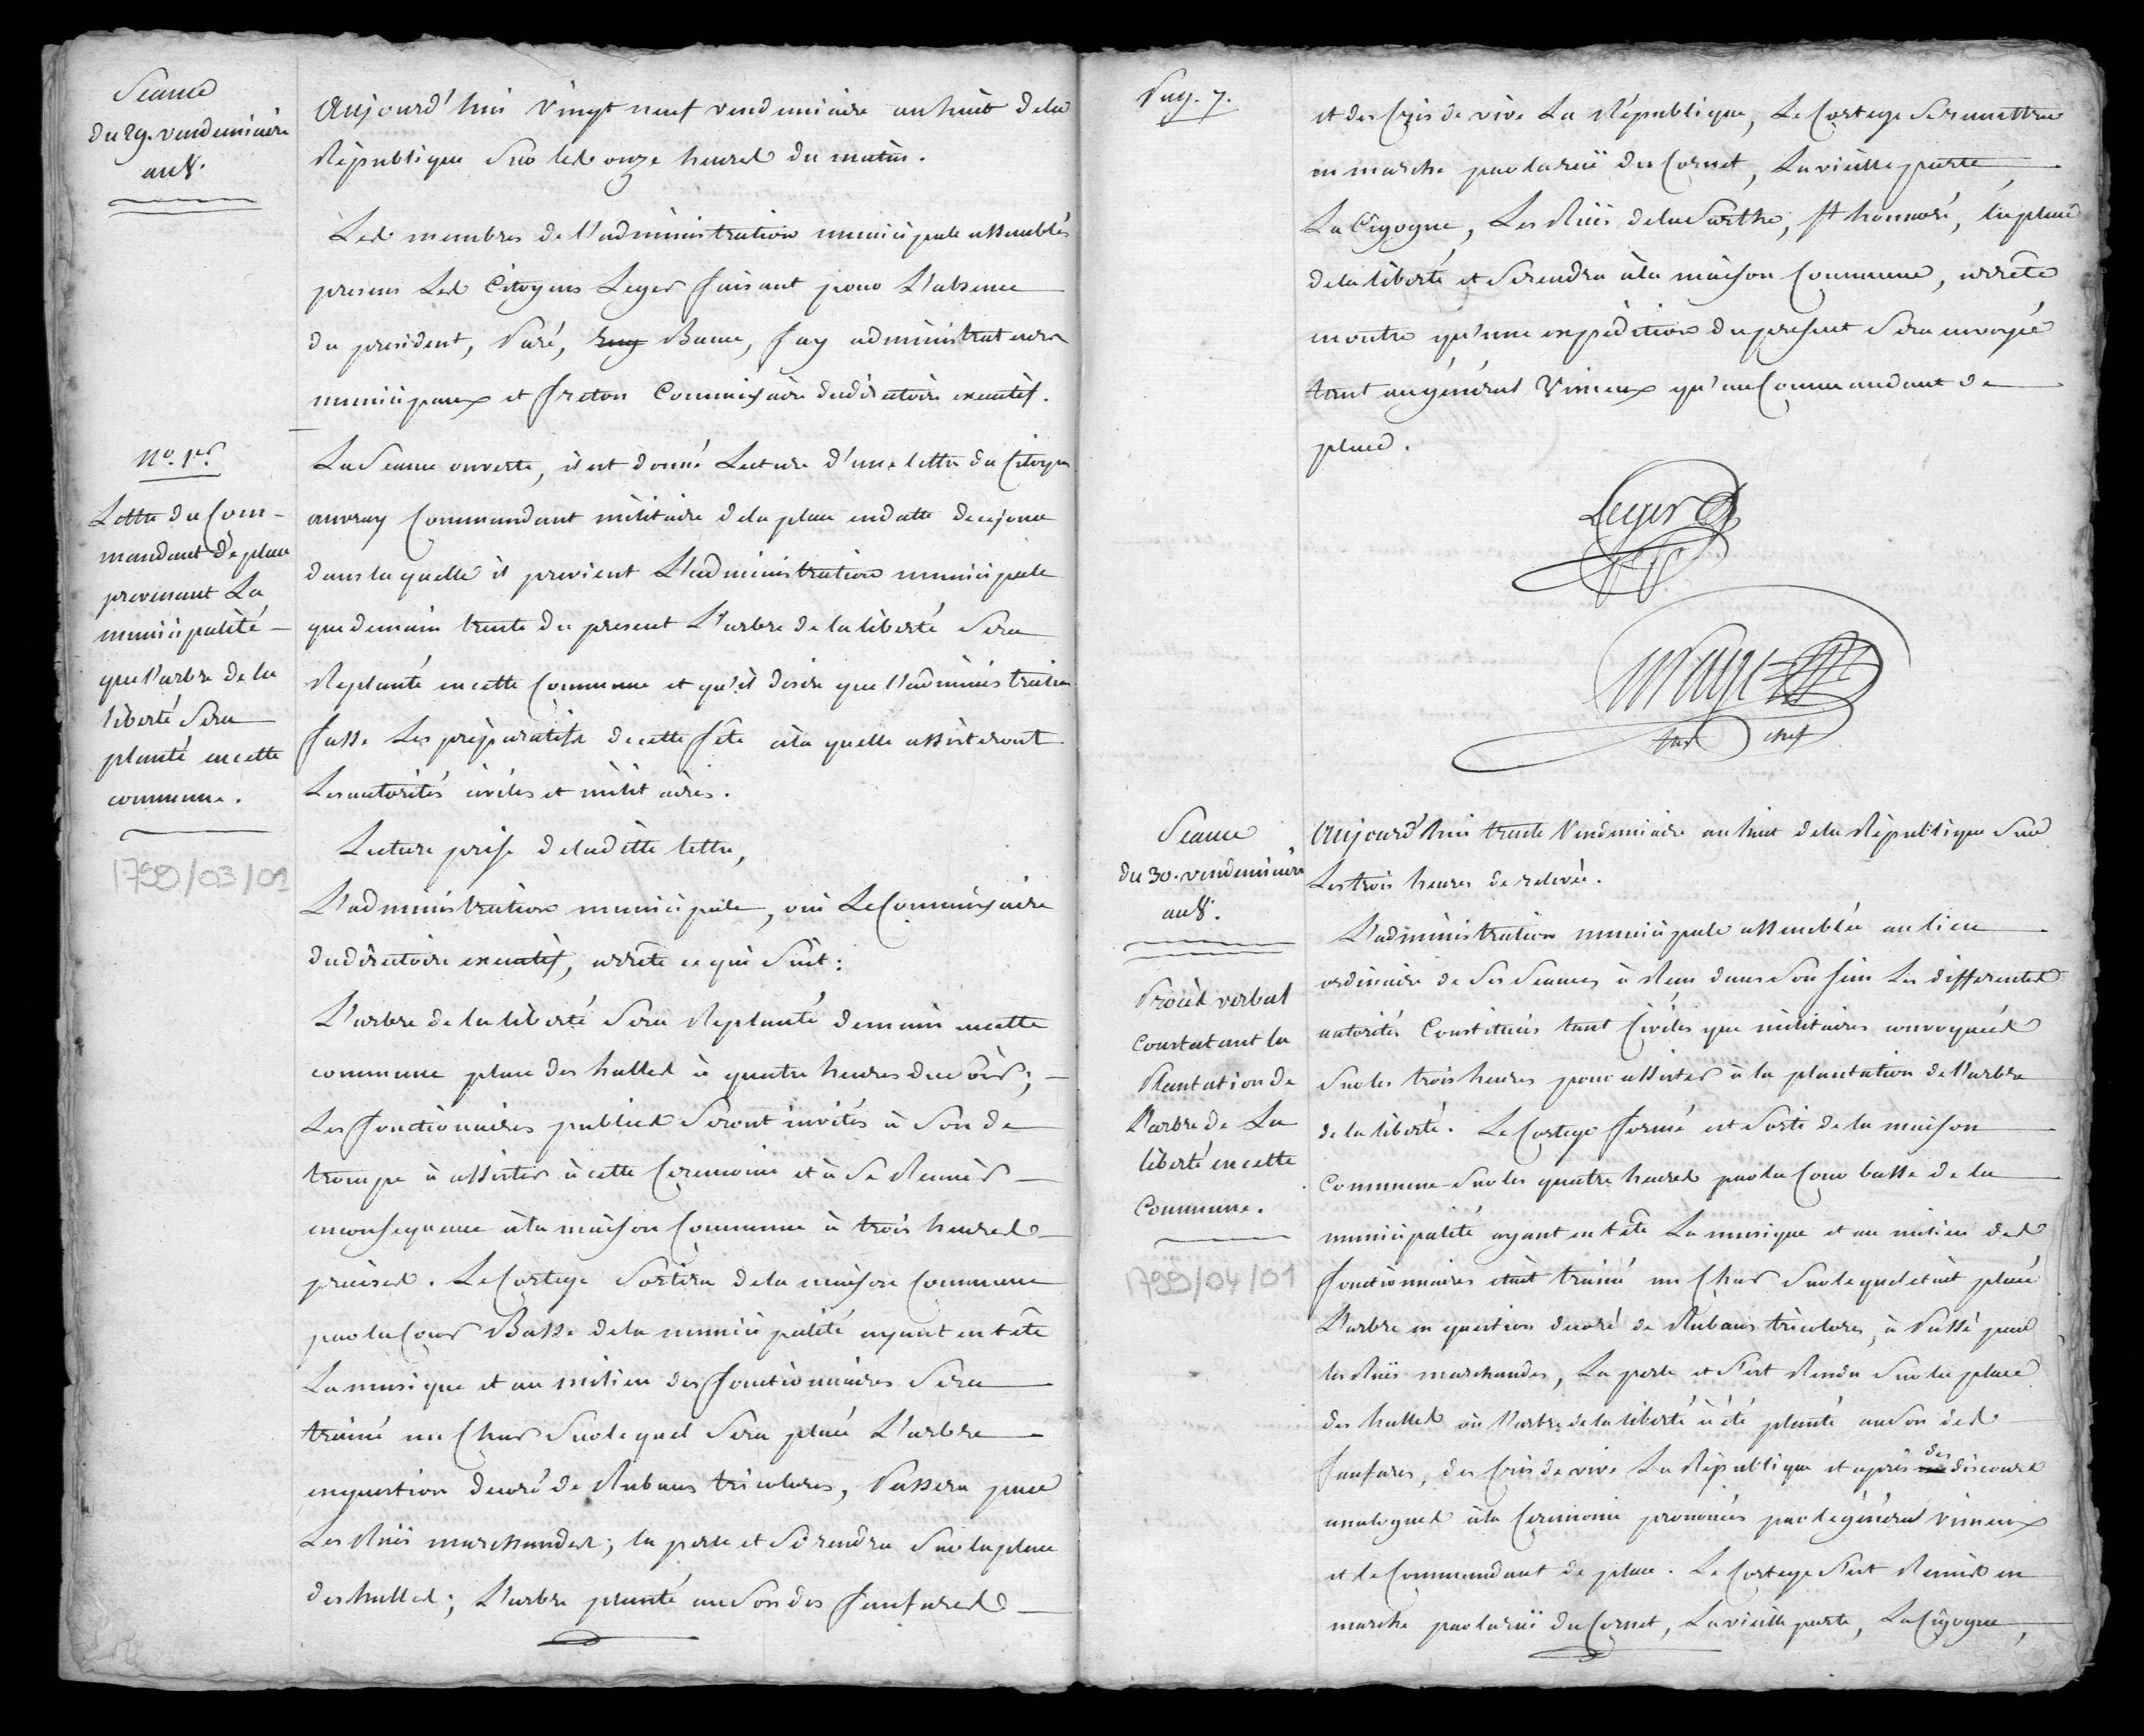 Seance
du 29. vendemiaire
an 8.
Aujourd'hui vingt neuf vendemiaire an huit dela
République sur les onze heures du matin.
Les membres de l'administration municipale assemblés
presens Les Citoyens Leger faisant pour L'absence
du president, Paré, Bume, fay administrateurs
municipaux et freton Commissaire du directoire executif.
N.o 1.er
Lettre du Com-
mandant de place
prevenant La
municipalité
que l'arbre de la
liberté sera
planté en cette
commune.
1799/03/01
La Seance ouverte, il est donné Lecture d'une lettre du Citoyen
auvray Commandant militaire dela place en datte de ce jour
dans laquelle il previent L'administration municipale
que demain trente du present L'arbre de la liberté sera
Replanté en cette Commune et qu'il desire que l'administration
fasse Les préparatifs de cette fête à la quelle assisteront
Les autorités civiles et militaires.
Lecture prise de ladite lettre,
L'administration municipale, oui Le Commissaire
du directoire executif, arrête ce qui suit:
L'arbre de la liberté sera Replanté demain en cette
commune place des halles à quatre heures du soir;
Les fonctionaires publics seront invités à son de
trompe à assister à cette Ceremonie et à se Reunir
en consequence à la maison Commune à trois heures
précises. Le Cortege sortira dela maison Commune
par la Cour Basse dela municipalité ayant en tête
La musique et au milieu des fonctionaires sera
trainé un Char sur lequel sera placé L'arbre
en question decoré de Rubans tricolores, Passera par
Les Rües marchandes; la perle et se rendra sur la place
des halles; L'arbre planté au son des fanfares
Pag. 7.
et des Cris de vive La République, Le Cortege se remettra
en marche par la rüe du Cornet, La vieille porte
La Cigogne, Les Rües dela Sarthe, St honnoré, la place
dela liberté et se rendra à la maison Commune, arrête
en outre qu'une expédition du present sera envoyée
tant au général Vimeux qu'au Commandant de
place.
Leger
sec.re en chef
Seance
du 30. vendemiaire
an 8.
Procès verbal
Constatant la
Plantation de
L'arbre de La
liberté en cette
Commune.
1799/04/01
Aujourd'hui trente Vendemiaire an huit dela République sur
Les trois heures de relevée.
L'administration municipale assemblée au lieu
ordinaire de ses seances à Reuni dans son sein Les differentes
autorités Constituées tant Civiles que militaires convoquées
sur les trois heures pour assister à la plantation de L'arbre
de la liberté. Le Cortege formé est sorti de la maison
Commune sur les quatre heures par la Cour basse de la
municipalité ayant en tête La musique et au milieu des
fonctionnaires etait trainé un Char sur lequel etait placé
L'arbre en question decoré de Rubans tricolores, à Passé par
les Rües marchandes, La perle et s'est Rendu sur la place
des halles où l'arbre de la liberté à été planté au son des
fanfares, des Cris de vive La République et après des discours
analogues à la Ceremonie prononcés par le général Vimeux
et le Commandant de place. Le Cortege s'est Remis en
marche par la rüe du Cornet, La vieille porte, La Cigogne,